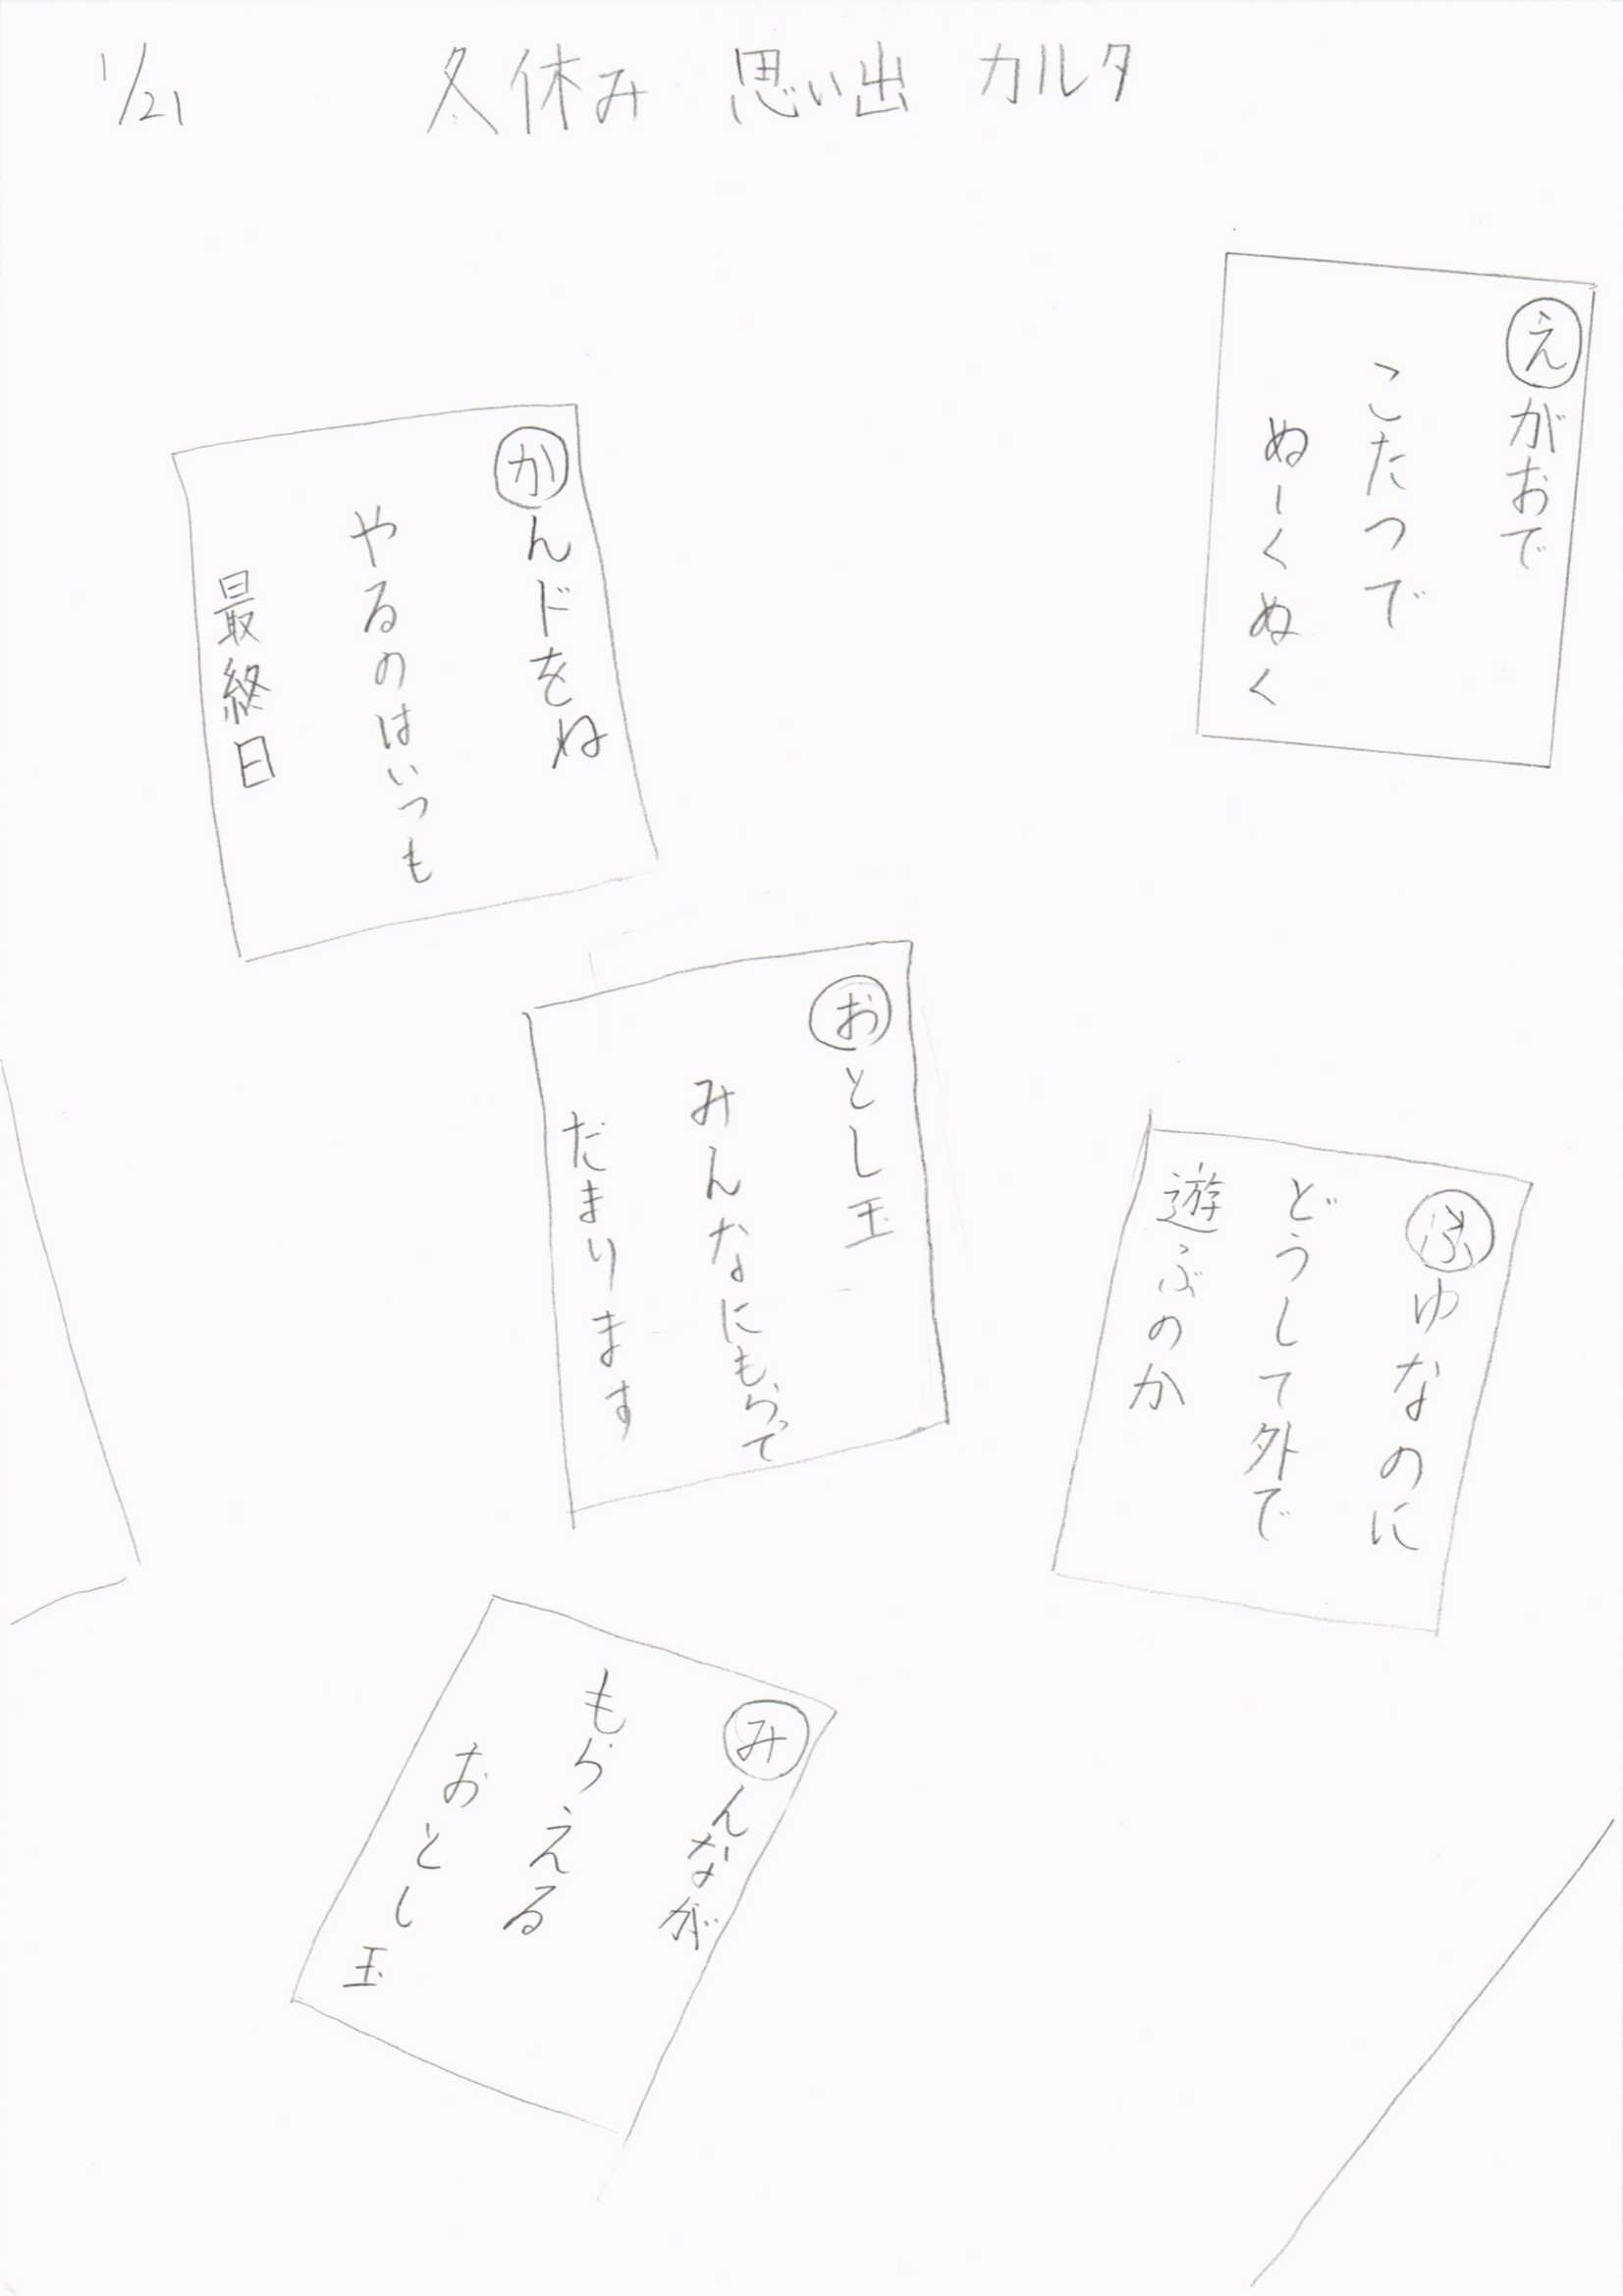 1/21 冬休み 思い出 カルタ
えがおで
こたつで
ぬーくぬく
かんドをね
やるのはいつも
最終日
おとし玉
みんなにもらって
だまります
ふゆなのに
どうして外で
遊ぶのか
みんなが
もらえる
おとし玉